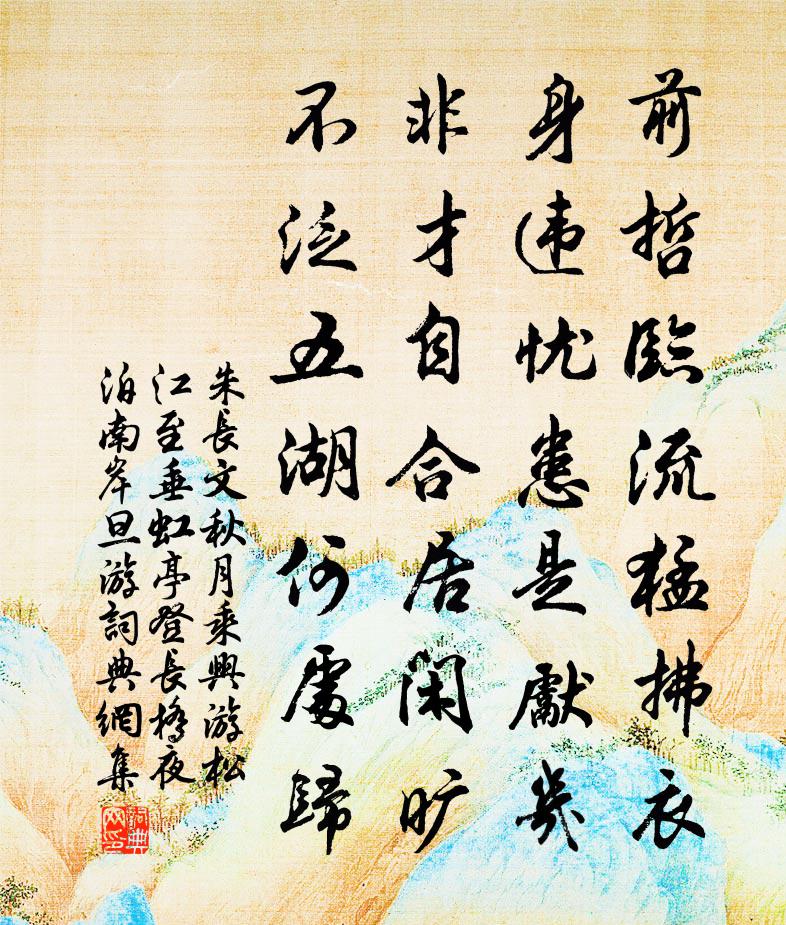 前哲臨流猛拂衣
身违忧患是獻幾
非才自合居閑旷
不泛五湖何處歸
朱長文秋月乘興游松
江至垂虹亭登長橋夜
泊南岸旦游詞典網集
詞典
网印